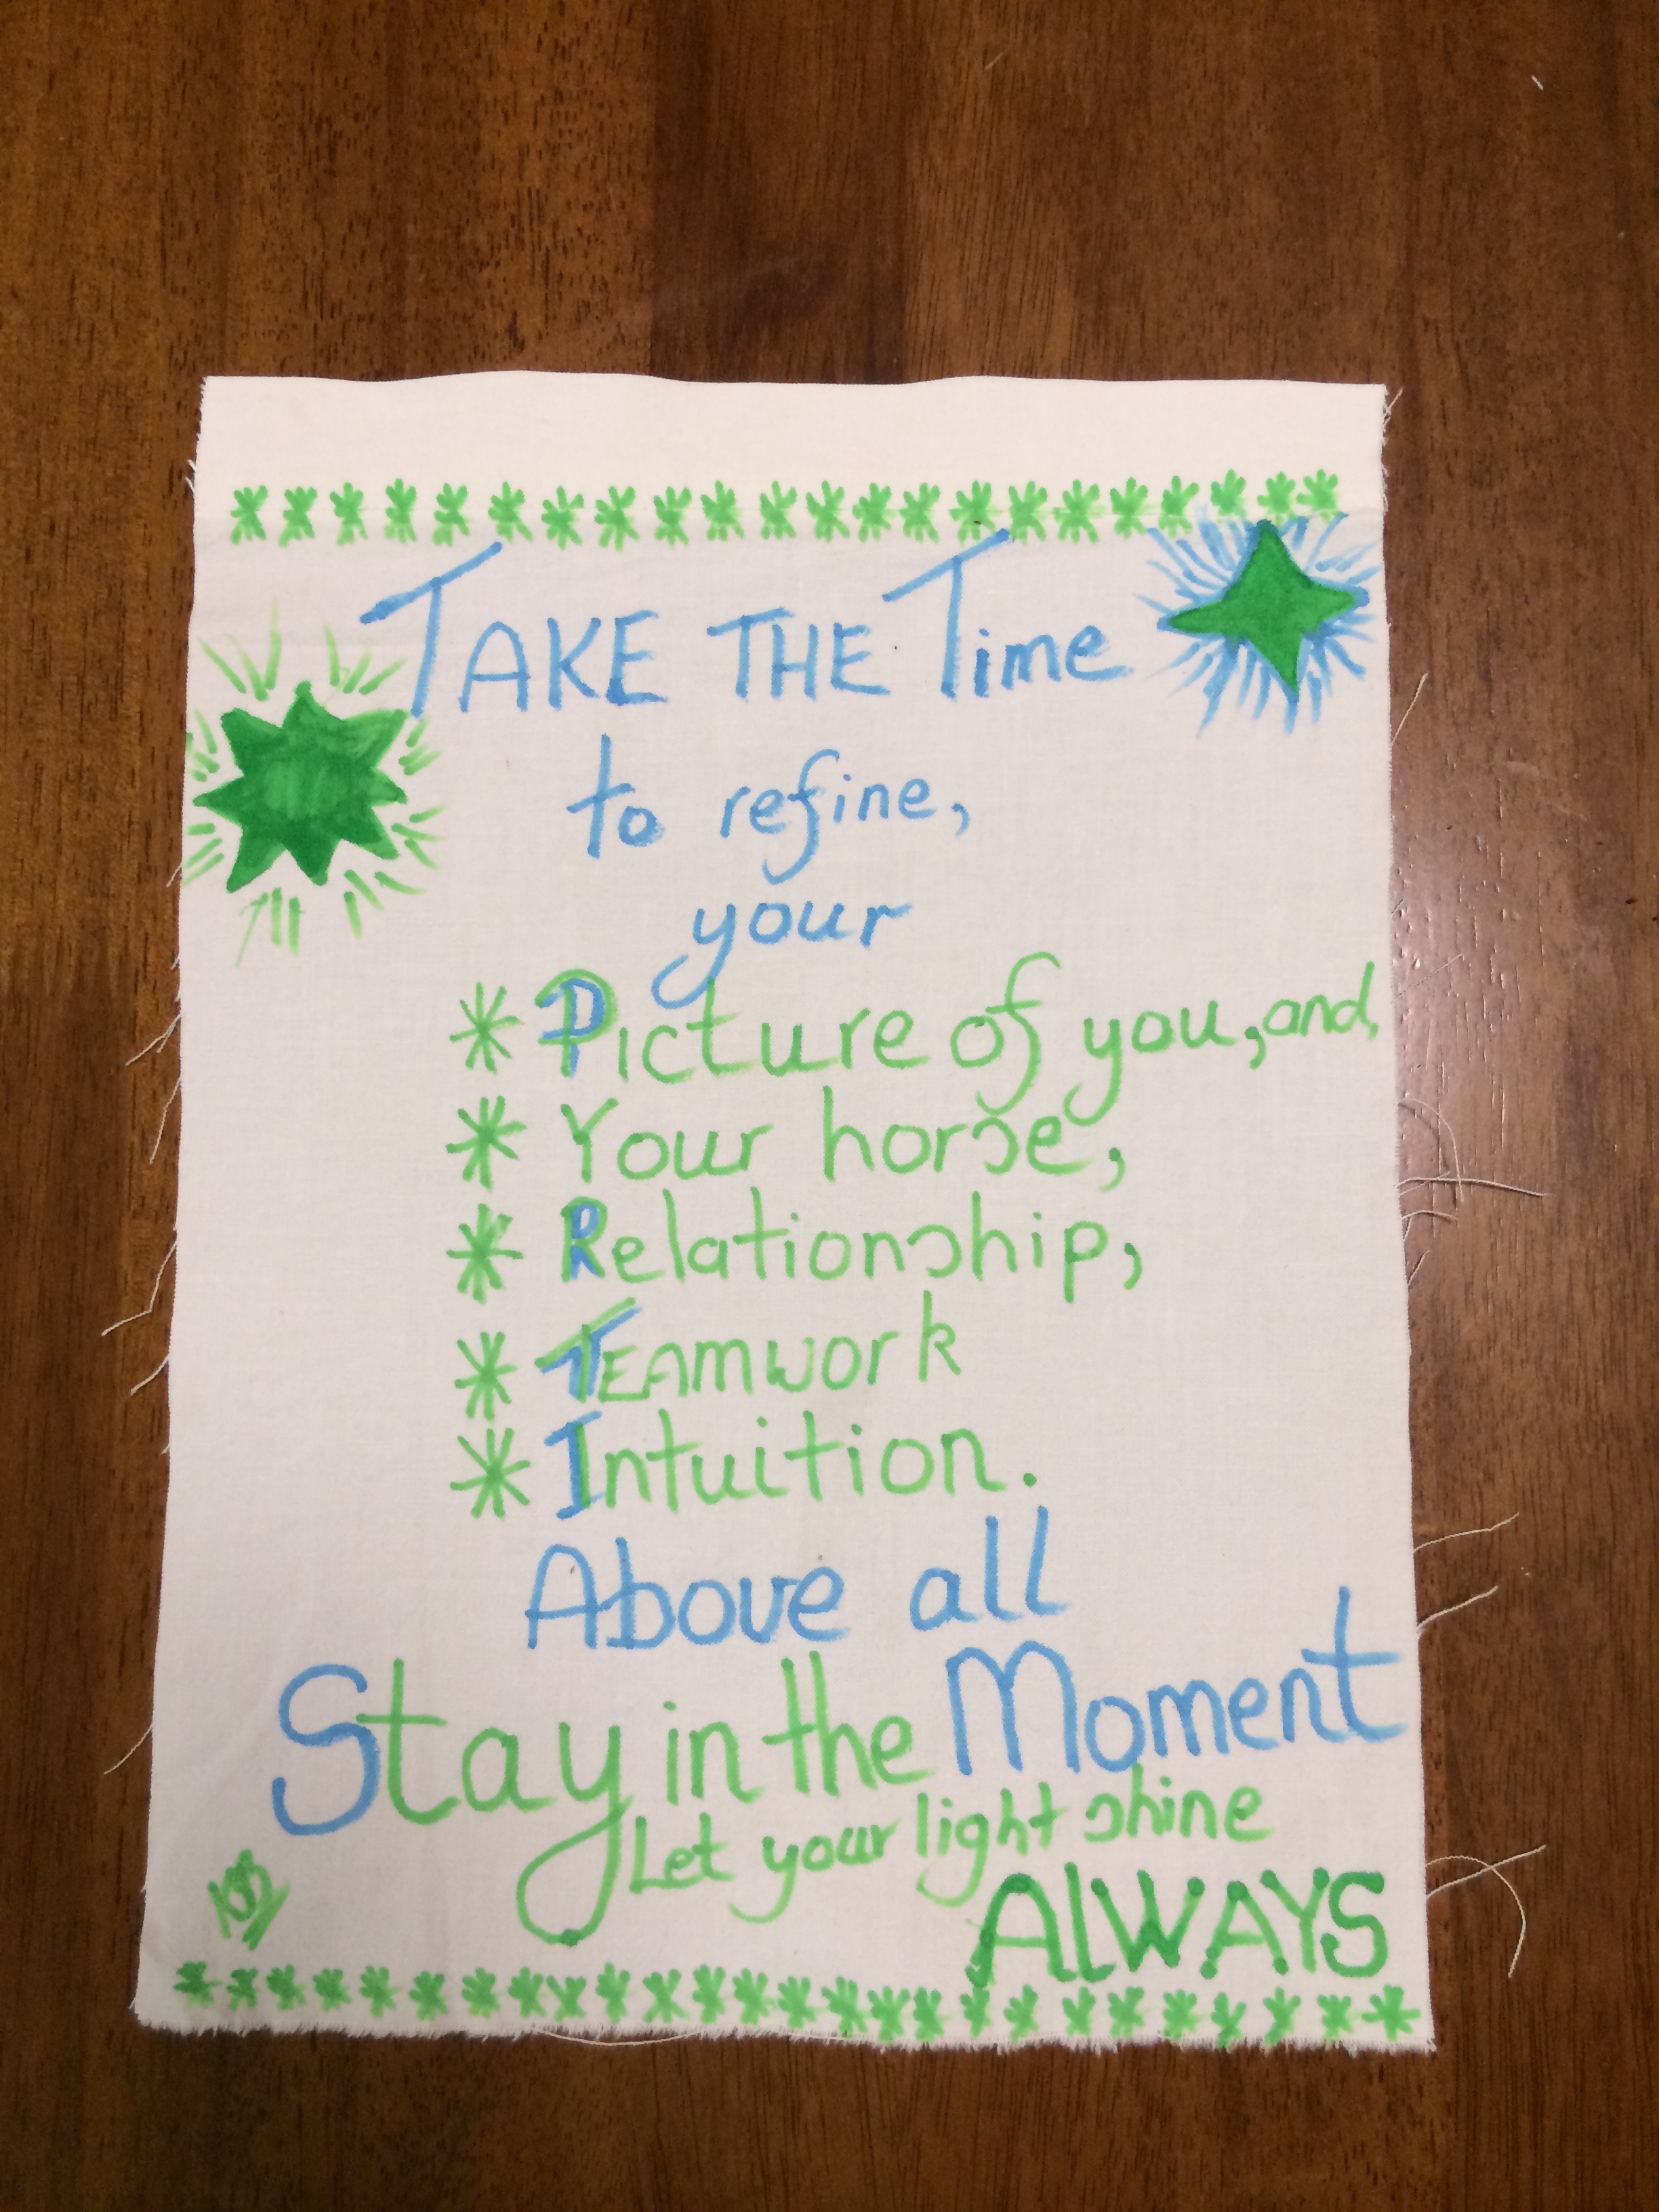 TAKE THE Time
to refine,
your
* Picture of you, and,
* Your horse,
* Relationship,
* TEAmwork
* Intuition.
Above all
Stay in the Moment
Let your light shine
AlWAYS